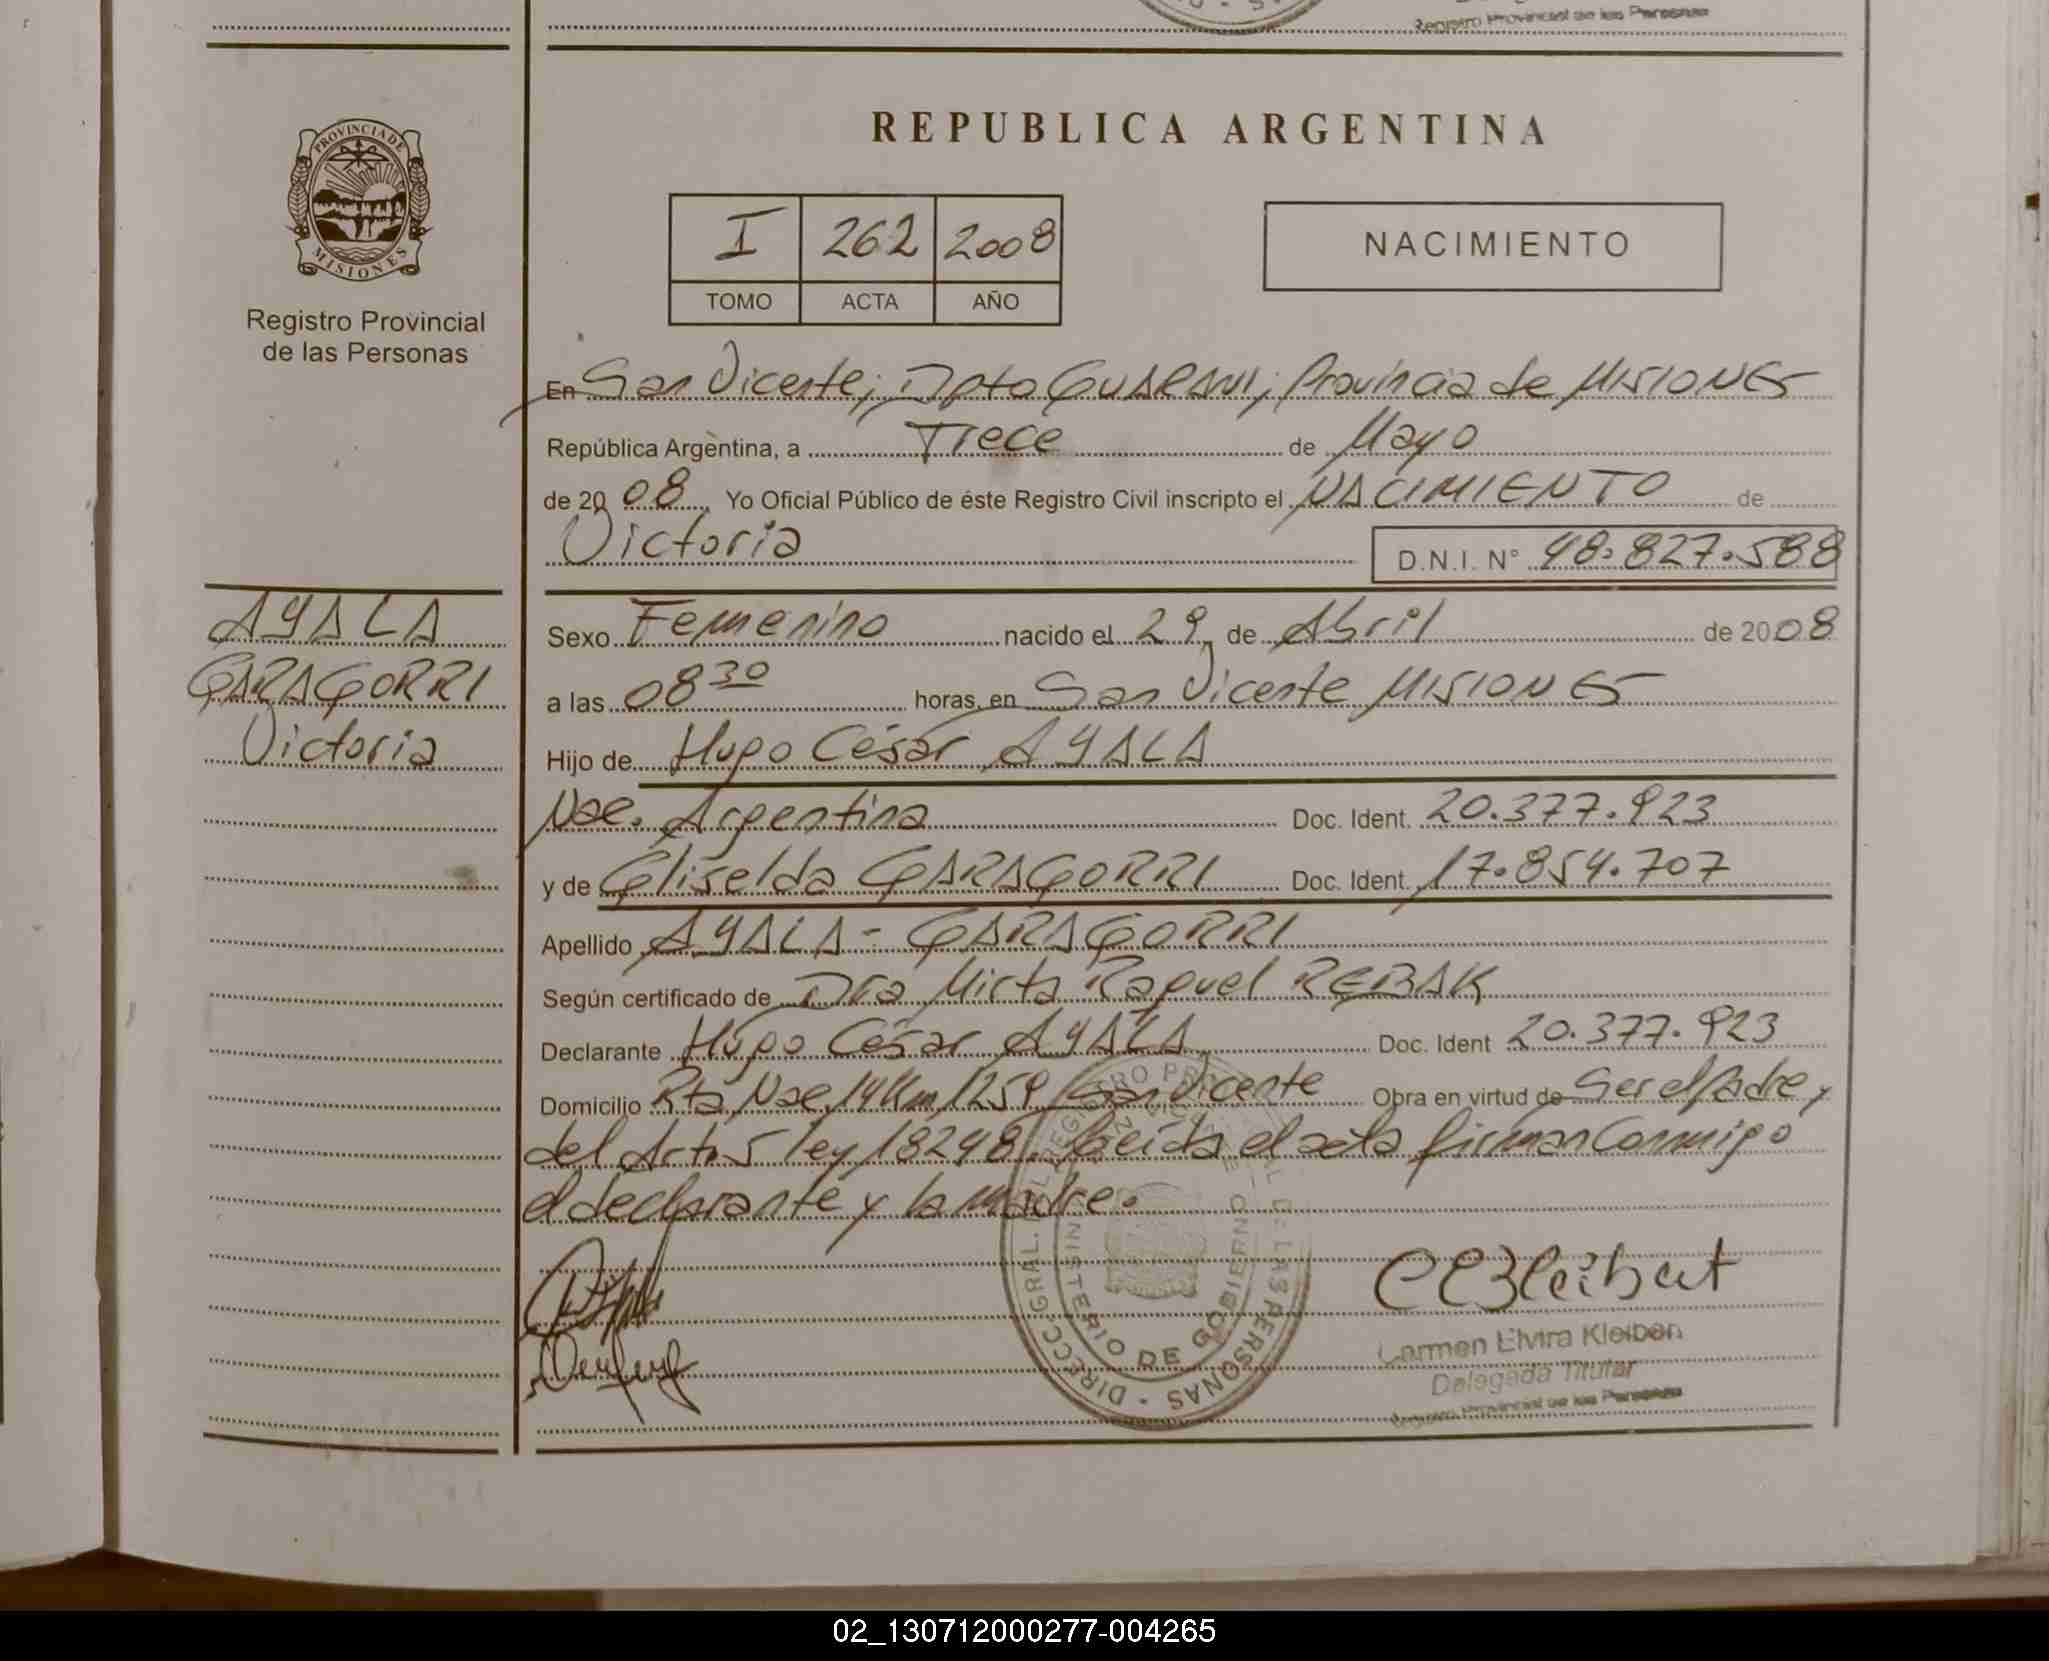 Registro Provincial de las Personas
PROVINCIA DE
MISIONES
Registro Provincial
de las Personas
REPUBLICA ARGENTINA
I 262 2008
TOMO ACTA AÑO
NACIMIENTO
En San Vicente; Dpto GUARANI; Provincia de MISIONES
República Argentina, a Trece de Mayo
de 2008 Yo Oficial Público de éste Registro Civil inscripto el NACIMIENTO de
Victoria D.N.I. N° 48.827.588
AYALA
GARAGORRI
Victoria
Sexo Femenino nacido el 29 de Abril de 2008
a las 08 30 horas, en San Vicente MISIONES
Hijo de Hugo César AYALA
Nac. Argentina Doc. Ident. 20.377.923
y de Gliselda GARAGORRI Doc. Ident. 17.854.707
Apellido AYALA - GARAGORRI
Según certificado de Dra Mirta Raquel REBAK
Declarante Hugo César AYALA Doc. Ident 20.377.923
Domicilio Rta Nac. 14 Km 1259 San Vicente Obra en virtud de Ser el Padre y
del Art. 5 ley 18248. Leída el acta firman Conmigo
el declarante y la madre.
DIRECC. GRAL. DEL REGISTRO PROVINCIAL DE LAS PERSONAS
MINISTERIO DE GOBIERNO
Carmen Elvira Kleibert
Delegada Titular
Registro Provincial de las Personas
02_130712000277-004265